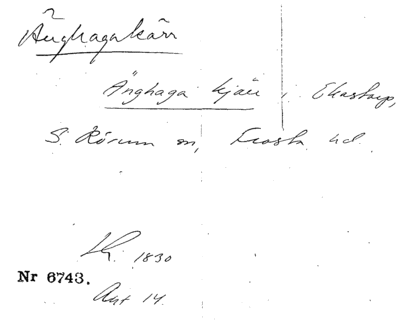 Änghagakärr
Änghaga kjärr, Ekastorp,
S. Rörum sn, Frosta hd.
1830
Nr 6743.
Akt 14.